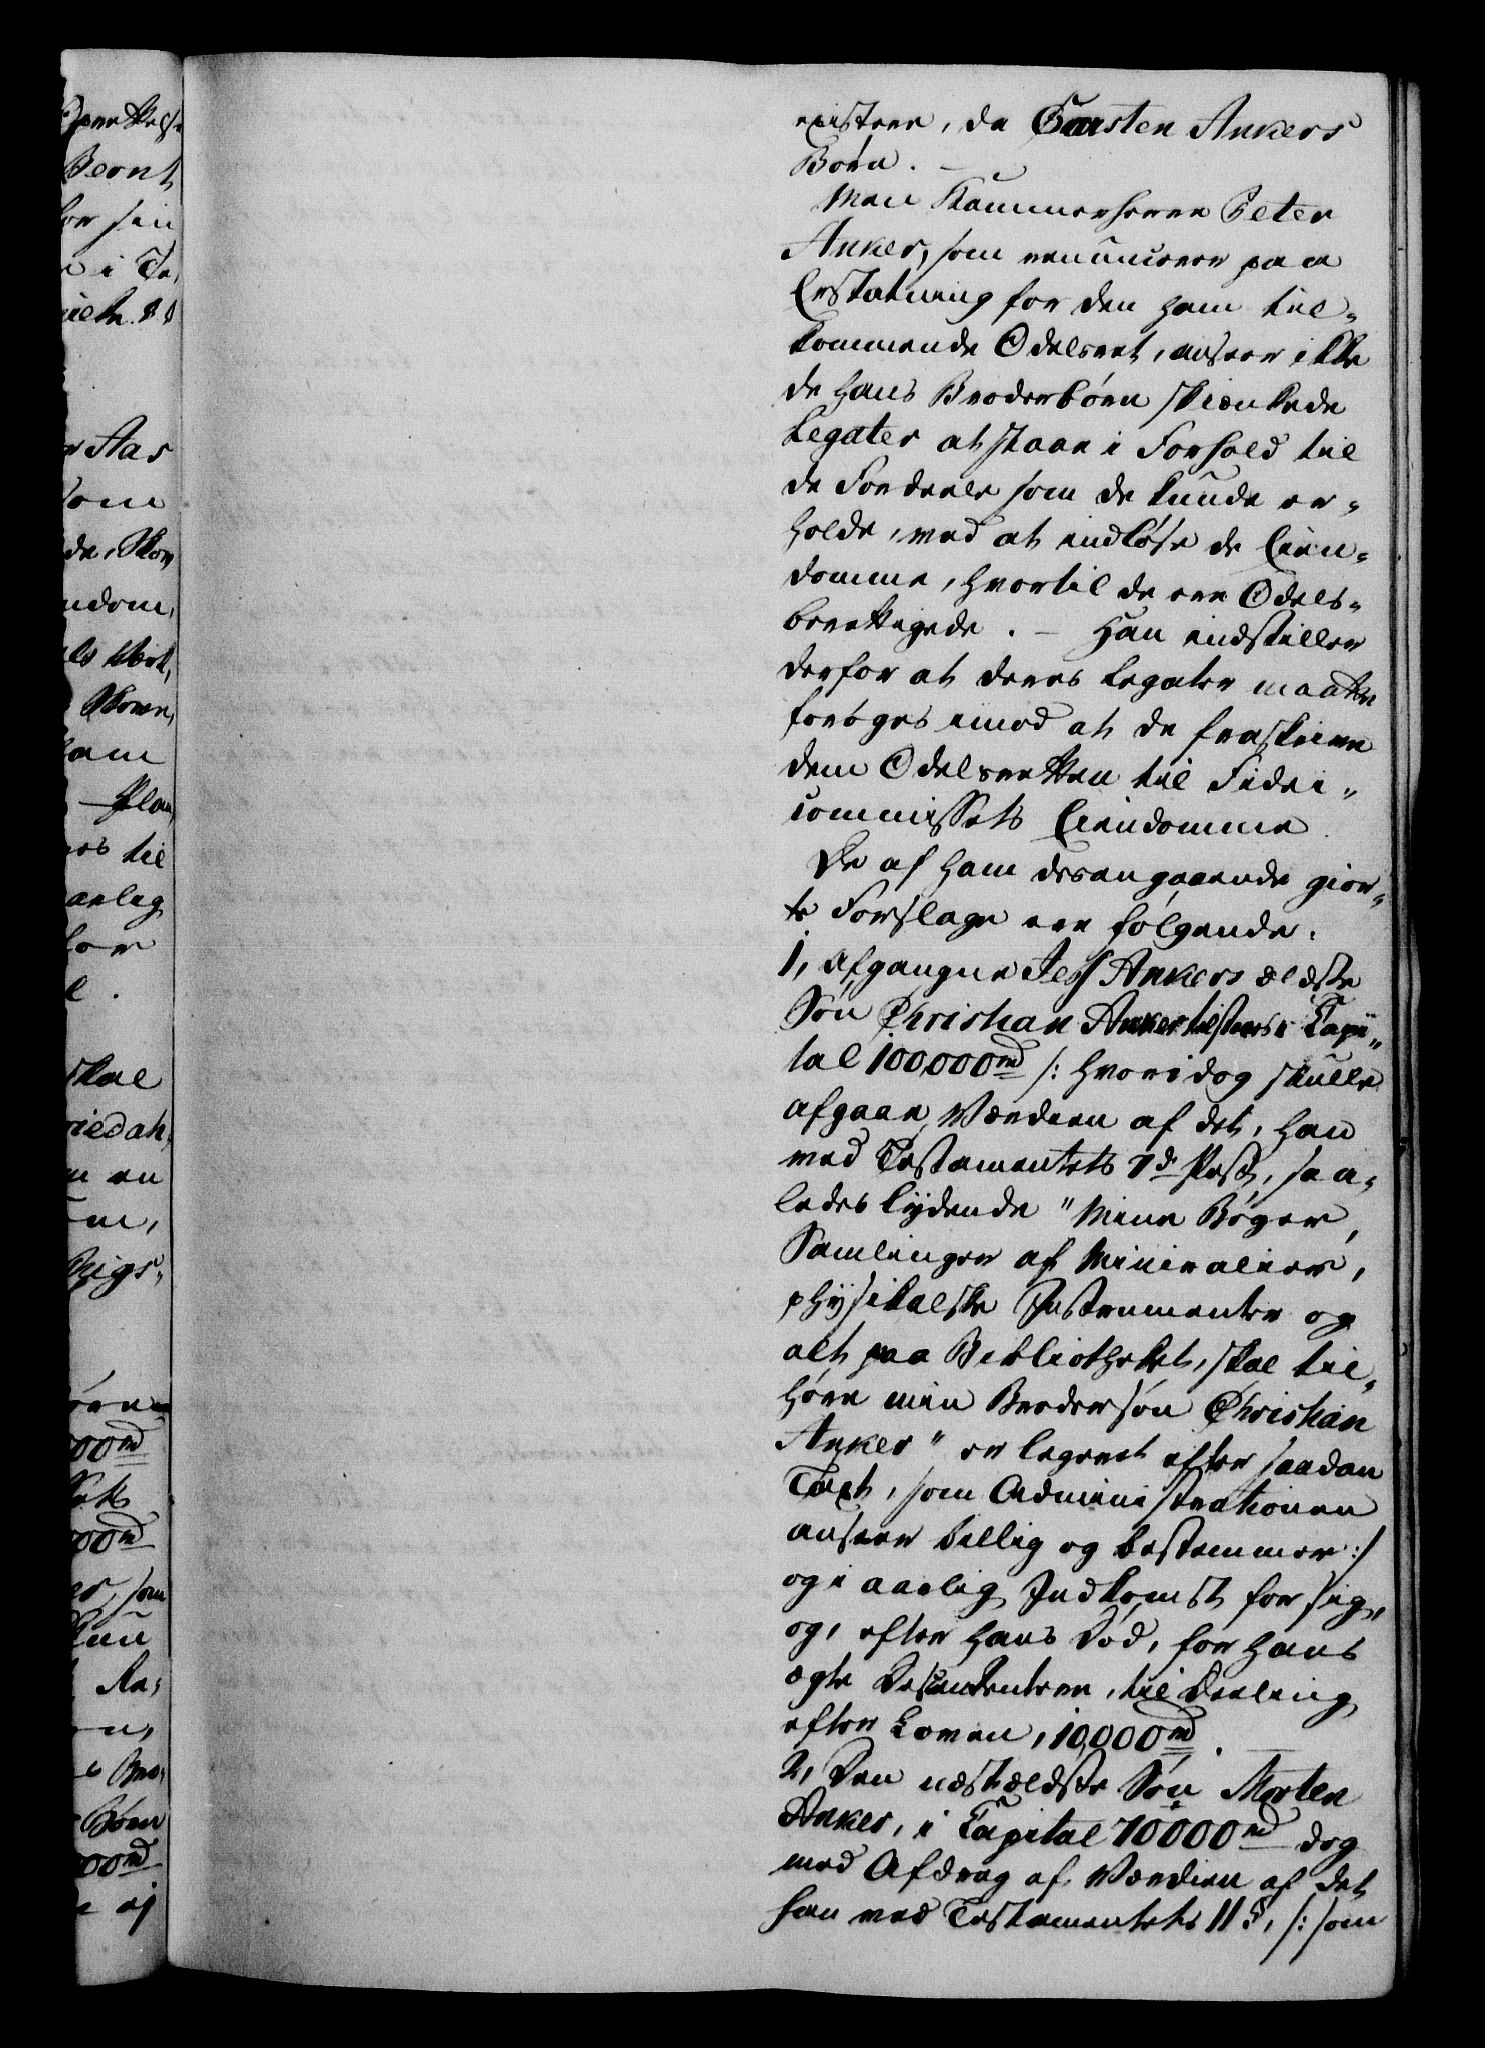 existere, da Carsten Ankers
Børn. —
Men Kammerherre Peter
Anker, som renuncerer paa
Erstatning for den ham til-
kommende Odelsret, anseer ikke
de hans Broderbørn skienkede
Legater at staae i Forhold til
de Fordeele som de kunde er-
holde, ved at indløse de Eien-
domme, hvortil de ere Odels-
berettigede. — Han indstiller
derfor at deres Legater maatte
forøges imod at de fraskrive
dem Odelsretten til Fidei-
commissets Eiendomme.
De af ham desangaaende gior-
te Forslage ere følgende:
1, afgangne Jess Ankers ældste
Søn Christian Anker tilstaaes i Capi-
tal 100,000 rd /: hvori dog skulle
afgaae Værdien af det, han
ved Testamentets 7de Post, saa-
ledes lydende "Mine Bøger,
Samlinger af Mineralier,
physikalske Instrumenter og
alt paa Bibliotheket, skal til-
høre min Brodersøn Christian
Anker" er legeret efter saadan
Taxt, som Administrationen
anseer billig og bestemmer :/
og i aarlig Indkomst for sig,
og, efter hans Død, for hans
ægte Descendentere, til Deeling
efter Loven, 10,000 rd. —
2, Den næstældste Søn Morten
Anker, i Capital 70000 rd dog
med Afdrag af Værdien af det
han ved Testamentets 11 §, /: som